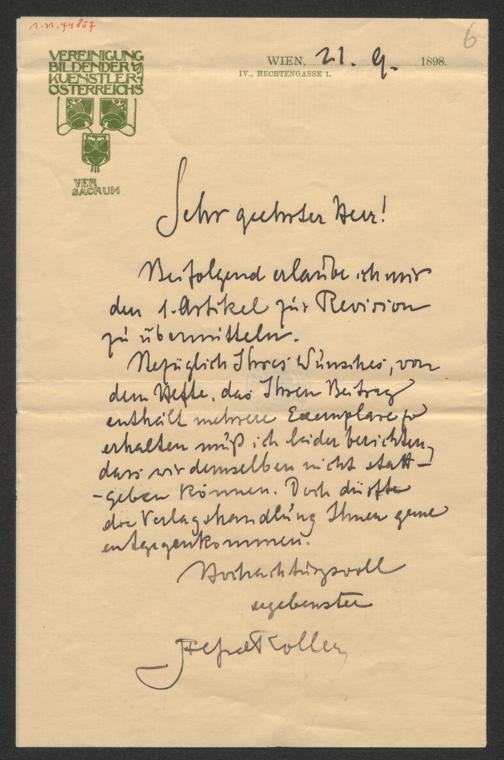 1.N.94857
6
VEREINIGUNG
BILDENDER
KUENSTLER
ÖSTERREICHS
VER
SACRUM
WIEN, 21. 9. 1898.
IV., HECHTENGASSE 1.
Sehr geehrter Herr!
Beifolgend erlaube ich mir
den 1. Artikel zur Revision
zu übermitteln.
Bezüglich Ihres Wunsches, von
dem Hefte, das Ihren Beitrag
enthält mehrere Exemplare zu
erhalten muß ich leider berichten,
dass wir demselben nicht statt-
-geben können. Doch dürfte
die Verlagshandlung Ihnen gerne
entgegenkommen.
Hochachtungsvoll
ergebenster
Alfred Roller